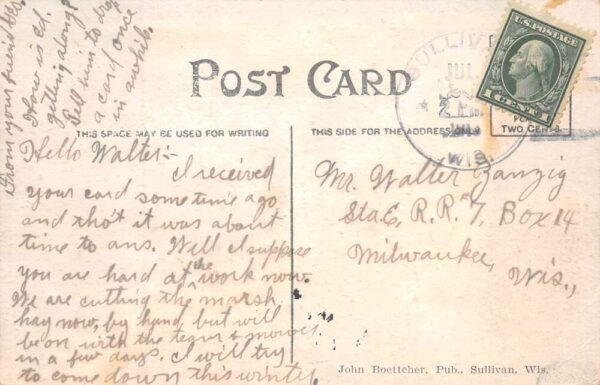 POST CARD
THIS SPACE MAY BE USED FOR WRITING
THIS SIDE FOR THE ADDRESS ONLY
U.S. POSTAGE
1 CENTS 1
TWO CENTS
SULLIV
JUL
2 PM
WIS.
Hello Walter:-
I received
your card some time ago
and tho't it was about
time to ans. Well I suppose
you are hard at the work now.
We are cutting the marsh
hay now, by hand but will
be on with the team & mower
in a few days. I will try
to come down this winter.
From your friend
How is Ed.
getting along?
Tell him to drop
a card once
in awhile.
Mr. Walter Zanzig
Sta. E, R.R. #7, Box 14
Milwaukee,
Wis.,
John Boettcher, Pub., Sullivan, Wis.